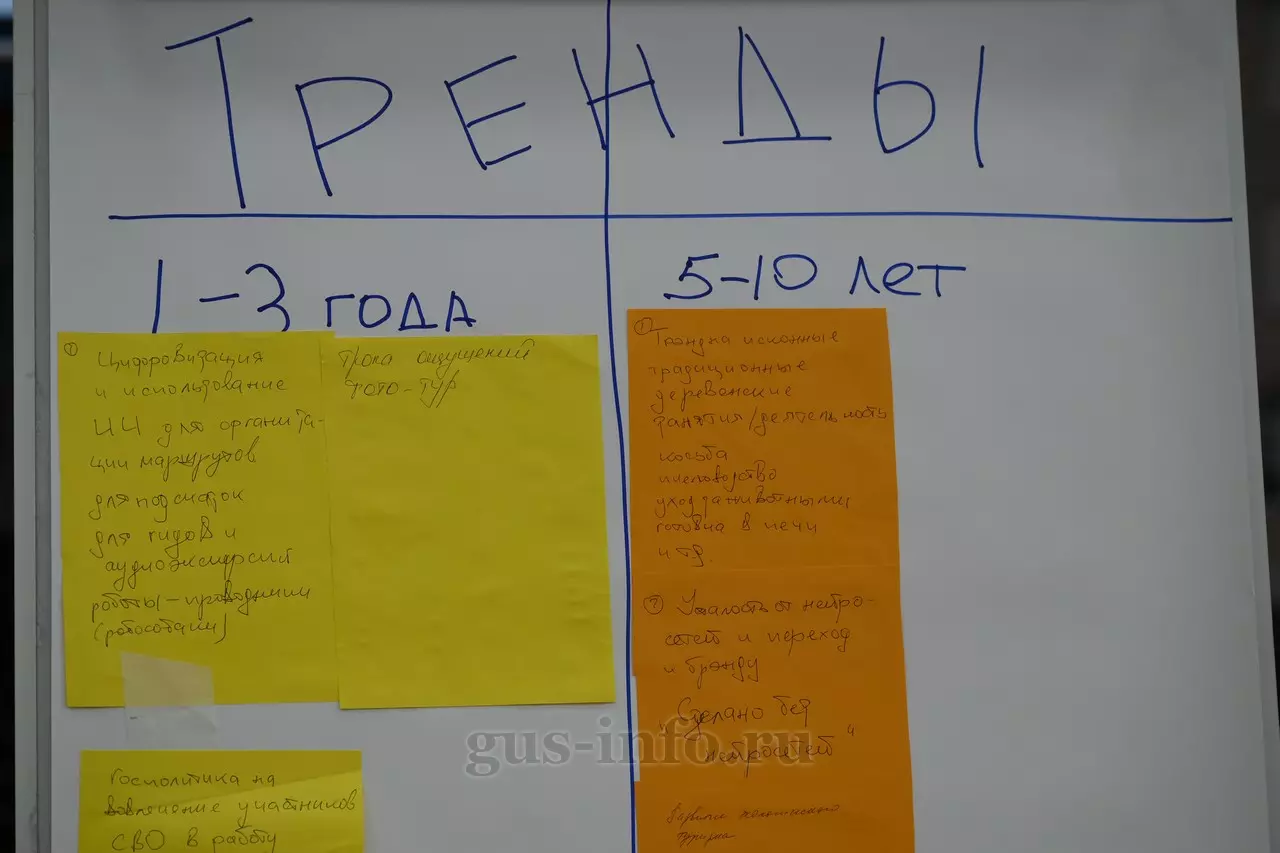 ТРЕНДЫ
1-3 года
5-10 лет
① Цифоровизация
и использование
ИИ для организа-
ции маршрутов
для подсказок
для гидов и
аудиоэкскурсий
роботы-проводники
(робособаки)
Тропа ощущений
Фото-тур
Госполитика на
вовлечение участников
СВО в работу
① исконные
традиционные
деревенские
занятия/деятельность
косьба
пчеловодство
уход за животными
готовка в печи
и тд.
② Усталость от нейро-
сетей и переход
к брэнду
"Сделано без
нейросетей"
gus-info.ru